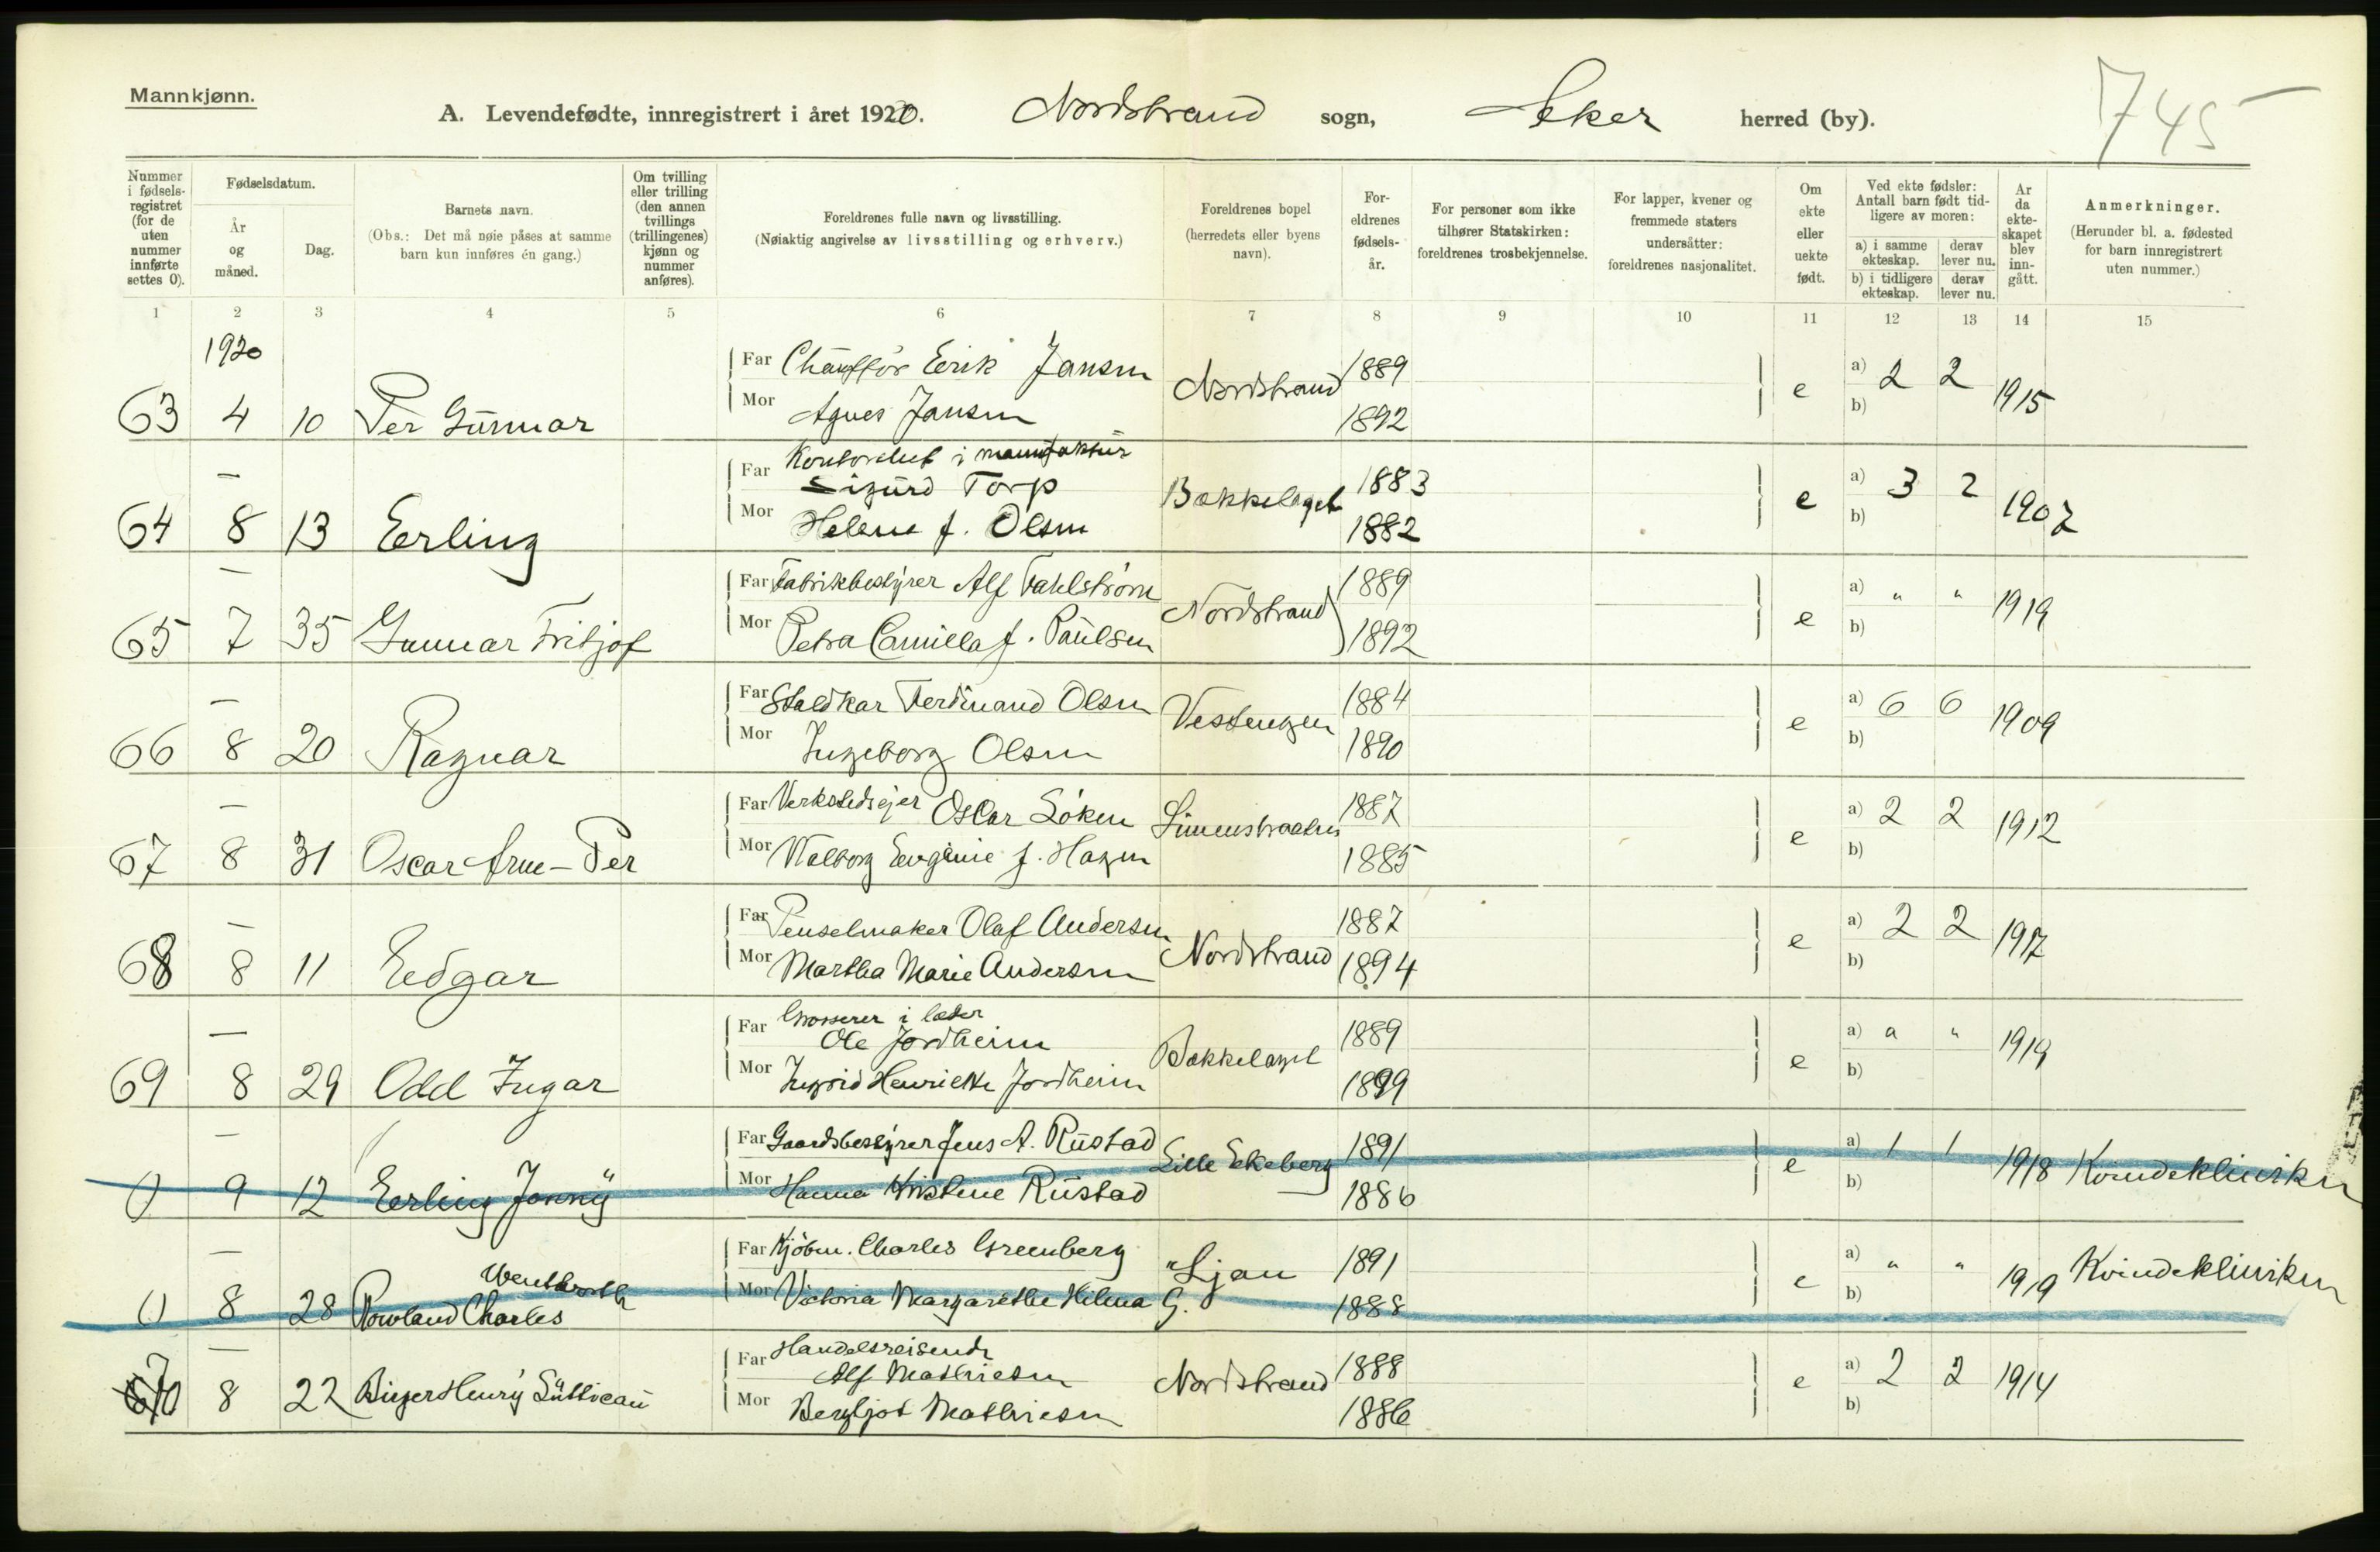 Mannkjønn.
A. Levendefødte, innregistrert i året 1920. Nordstrand sogn, Aker herred (by).
745
Nummer i fødselsregistret (for de uten nummer innførte settes 0).
Fødselsdatum.
År og måned.
Dag.
Barnets navn.
(Obs.: Det må nøie påses at samme barn kun innføres én gang.)
Om tvilling eller trilling (den annen tvillings (trillingenes) kjønn og nummer anføres).
Foreldrenes fulle navn og livsstilling.
(Nøiaktig angivelse av livsstilling og erhverv.)
Foreldrenes bopel (herredets eller byens navn).
Foreldrenes fødselsår.
For personer som ikke tilhører Statskirken: foreldrenes trosbekjennelse.
For lapper, kvener og fremmede staters undersåtter: foreldrenes nasjonalitet.
Om ekte eller uekte født.
Ved ekte fødsler: Antall barn født tidligere av moren:
a) i samme ekteskap. derav lever nu.
b) i tidligere ekteskap. derav lever nu.
År da ekteskapet blev inngått.
Anmerkninger.
(Herunder bl. a. fødested for barn innregistrert uten nummer.)
1 2 3 4 5 6 7 8 9 10 11 12 13 14 15
1920
Far Chauffør Erik Jansen 1889 a) 2 2
63 4 10 Per Gunnar Mor Agnes Jansen Nordstrand 1892 e b) 1915
— Far Kontorchef i manufaktur
Sigurd Torp 1883 a) 3 2
64 8 13 Erling Mor Helene f. Olsen Bækkelaget 1882 e b) 1907
— Far Fabrikbestyrer Alf Fahlstrøm 1889 a) " "
65 7 35 Gunnar Fritjof Mor Petra Camilla f. Paulsen Nordstrand 1892 e b) 1919
— Far Staldkar Ferdinand Olsen 1884 a) 6 6
66 8 20 Ragnar Mor Ingeborg Olsen Vestengen 1890 e b) 1909
— Far Verkstedseier Oscar Löken 1887 a) 2 2
67 8 31 Oscar Arne - Per Mor Valborg Eugenie f. Hagen 1885 e b) 1912
— Far Penselmaker Olaf Andersen 1887 a) 2 2
68 8 11 Edgar Mor Martha Marie Andersen Nordstrand 1894 e b) 1917
— Far Grosserer i læder
Ole Jordheim 1889 a) " "
69 8 29 Odd Ingar Mor Ingrid Henriette Jordheim Bækkelaget 1899 e b) 1919
— Far Gaardsbestyrer Jens A. Rustad 1891 a) 1 1
0 9 12 Erling Jonny Mor Hanna Kristine Rustad Lille Ekeberg 1886 e b) 1918 Kvindeklinikken
— Far Kjöbm. Charles Greenberg 1891 a) " "
Wentworth
0 8 28 Rowland Charles Mor Victoria Margarethe Hilma G. Ljan 1888 e b) 1919 Kvindeklinikken
— Far Handelsreisende
Alf Mathiesen 1888 a) 2 2
70 8 22 Birger Henry Mor Bergljot Mathiesen Nordstrand 1886 e b) 1914